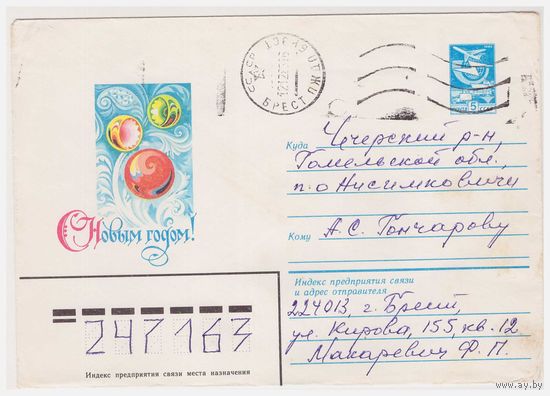 СССР БРЕСТ
5
С Новым годом!
Куда Чечерский р-н,
Гомельской обл.,
п.о Нисимковичи
Кому А.С. Гончарову
Индекс предприятия связи
и адрес отправителя
224013, г. Брест,
ул. Кирова, 155, кв. 12
Макаревич Ф. П.
247163
Индекс предприятия связи места назначения
www.ay.by